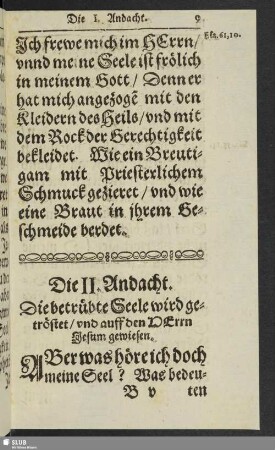 Die I. Andacht. 9
Jch frewe mich im HErrn/ Esa. 61, 10.
vnnd meine Seele ist frölich
in meinem Gott/ Denn er
hat mich angezogẽ mit den
Kleidern des Heils/ vnd mit
dem Rock der Gerechtigkeit
bekleidet. Wie ein Breuti-
gam mit Priesterlichem
Schmuck gezieret/ vnd wie
eine Braut in jhrem Ge-
schmeide berdet.
Die II. Andacht.
Die betrübte Seele wird ge-
tröstet/ vnd auff den HErrn
Jesum gewiesen.
ABer was höre ich doch
meine Seel? Was bedeu-
B v ten
SLUB